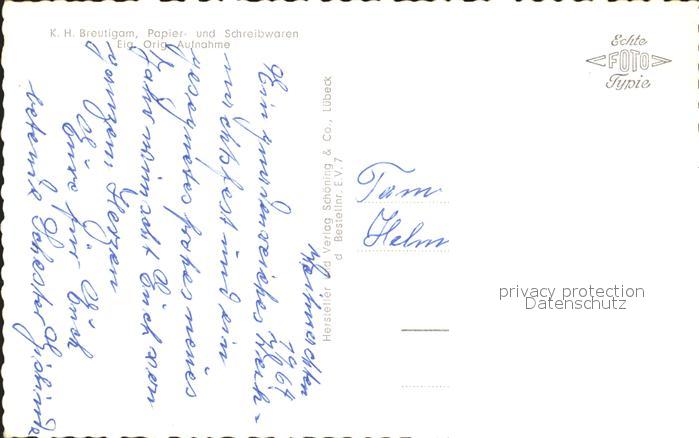 K. H. Breutigam, Papier- und Schreibwaren
Eig. Orig. Aufnahme
Echte
FOTO
Typie
Weihnachten
1967
Ein gnadenreiches Weih-
nachtsfest und ein
gesegnetes frohes neues
Jahr wünscht Euch von
ganzem Herzen
Eure für Euch
betende Schwester
Hersteller und Verlag Schöning & Co., Lübeck
Bestellnr. E.V. 7
Fam
Helm
privacy protection
Datenschutz